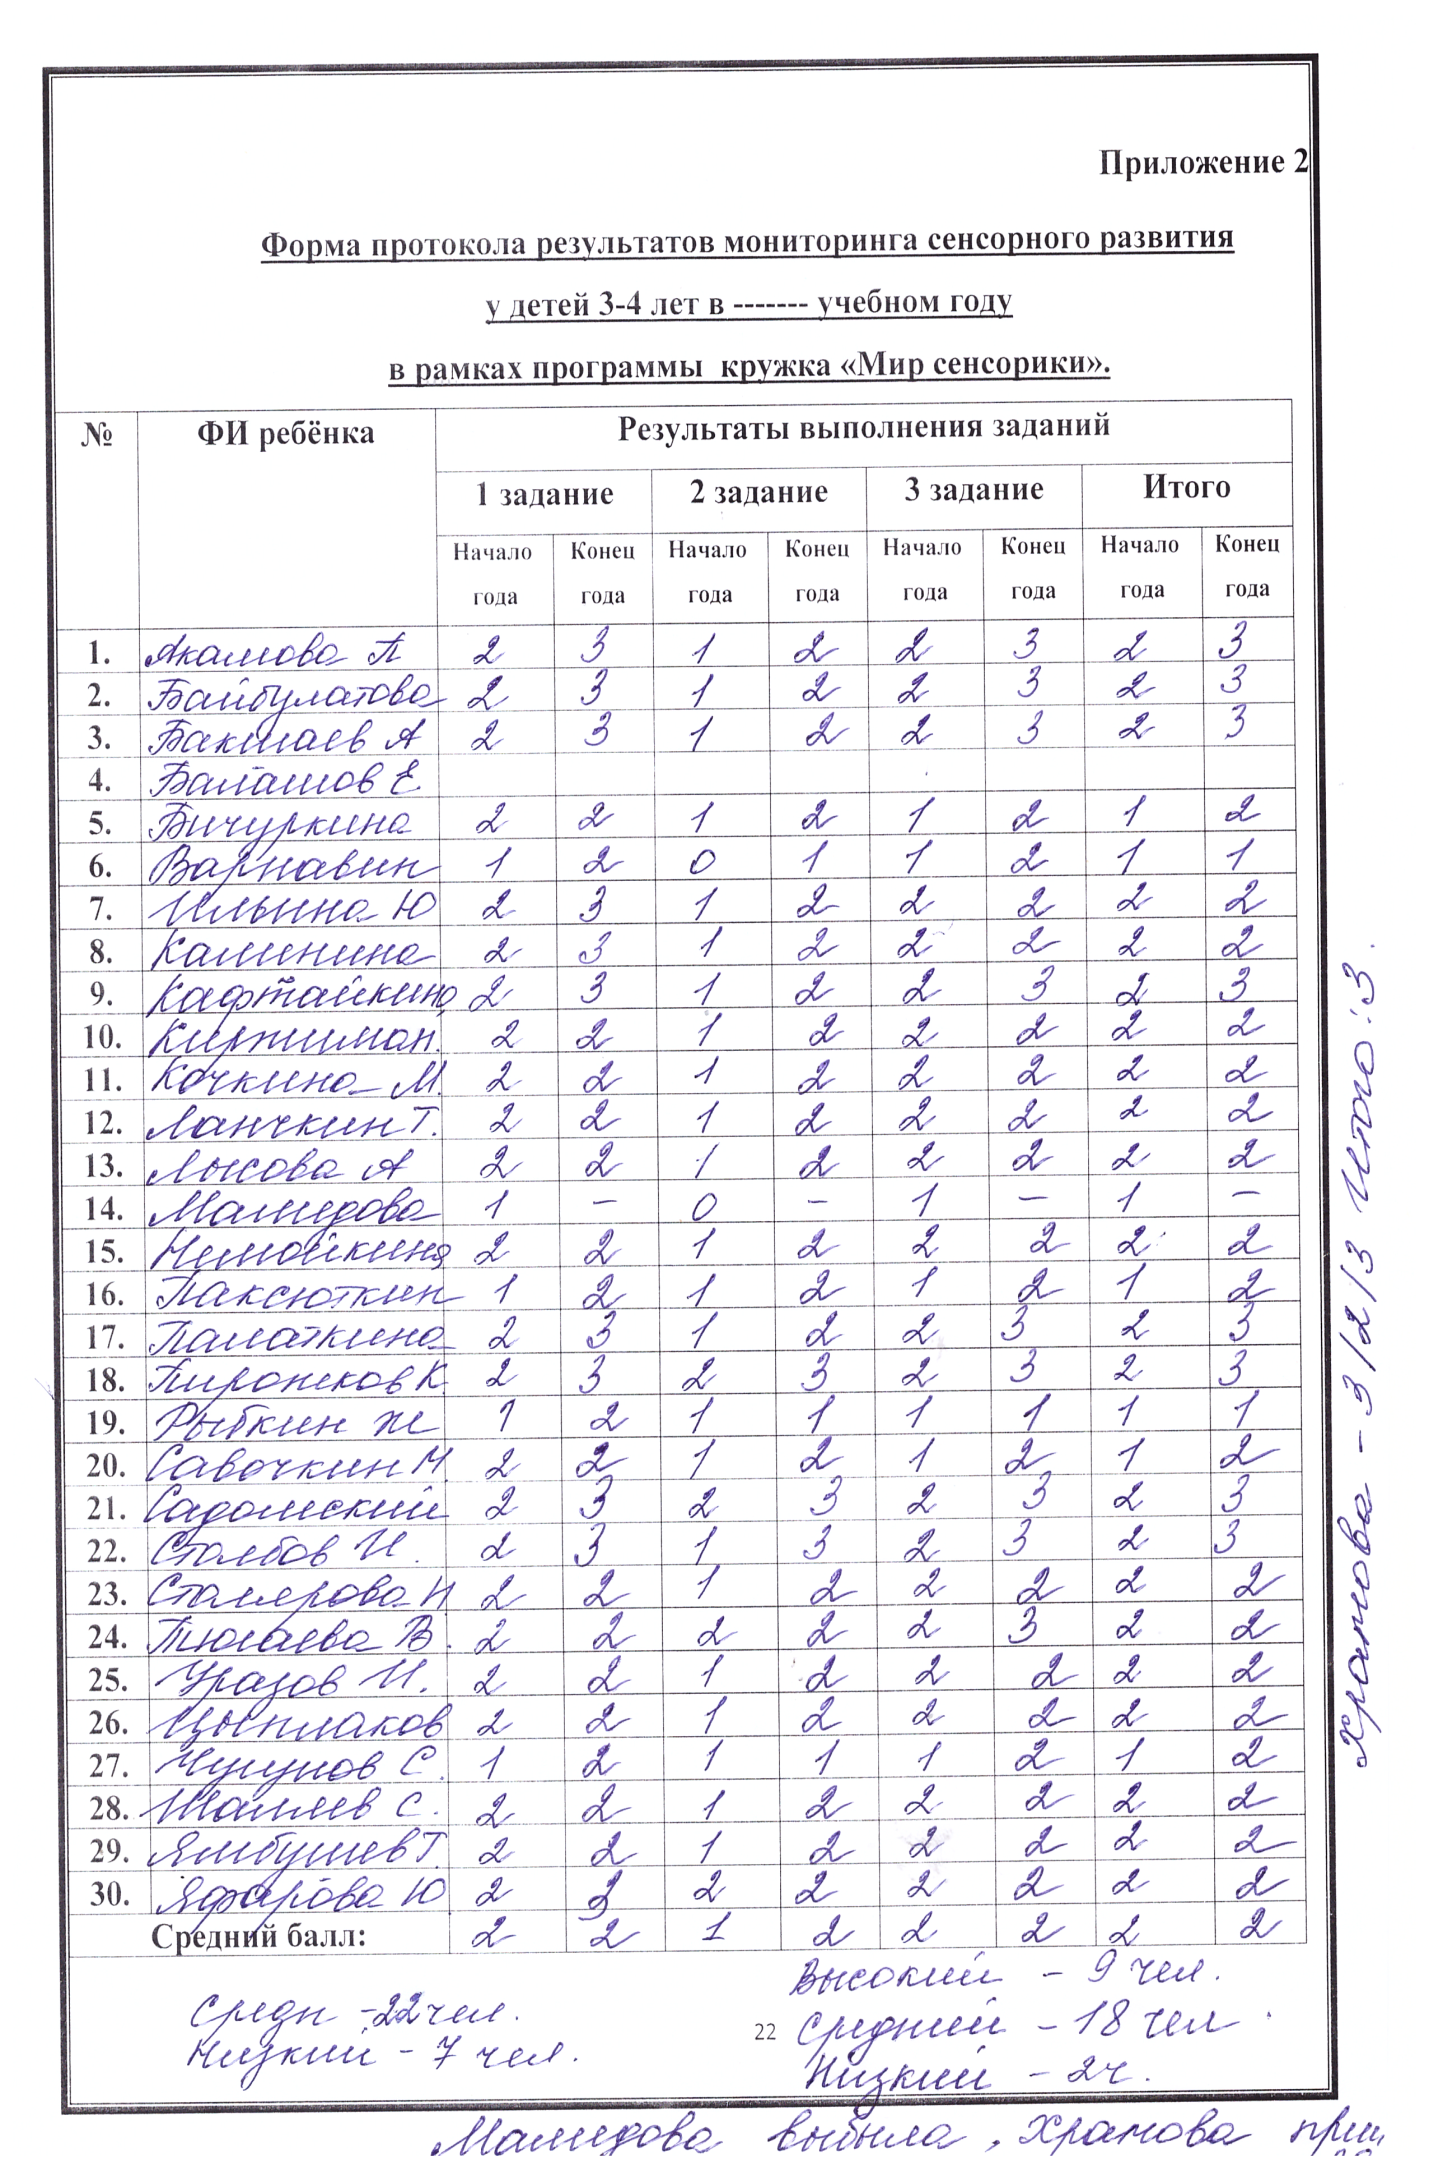 Приложение 2
Форма протокола результатов мониторинга сенсорного развития
у детей 3-4 лет в ------- учебном году
в рамках программы кружка «Мир сенсорики».
№ ФИ ребёнка Результаты выполнения заданий
1 задание 2 задание 3 задание Итого
Начало года Конец года Начало года Конец года Начало года Конец года Начало года Конец года
1. Акамова П 2 3 1 2 2 3 2 3
2. Байбулатова 2 3 1 2 2 3 2 3
3. Бакшаев А 2 3 1 2 2 3 2 3
4. Балашов Е.
5. Бичуркина 2 2 1 2 1 2 1 2
6. Варнавин 1 2 0 1 1 2 1 1
7. Ильина Ю 2 3 1 2 2 2 2 2
8. Калинина 2 3 1 2 2 2 2 2
9. Кафтайкина 2 3 1 2 2 3 2 3
10. Киржиман. 2 2 1 2 2 2 2 2
11. Кочкина М. 2 2 1 2 2 2 2 2
12. Ланчкин Т. 2 2 1 2 2 2 2 2
13. Лысова А 2 2 1 2 2 2 2 2
14. Мамедова 1 – 0 – 1 – 1 –
15. Немойкина 2 2 1 2 2 2 2 2
16. Паксюткин 1 2 1 2 1 2 1 2
17. Палаткина 2 3 1 2 2 3 2 3
18. Пиронсков К. 2 3 2 3 2 3 2 3
19. Рыбкин Ж 1 2 1 1 1 1 1 1
20. Савочкин М. 2 2 1 2 1 2 1 2
21. Садомский 2 3 2 3 2 3 2 3
22. Столбов И. 2 3 1 3 2 3 2 3
23. Столярова Н 2 2 1 2 2 2 2 2
24. Тюгаева В. 2 2 2 2 2 3 2 2
25. Уразов И. 2 2 1 2 2 2 2 2
26. Цыплаков 2 2 1 2 2 2 2 2
27. Чугунов С. 1 2 1 1 1 2 1 2
28. Шаляев С. 2 2 1 2 2 2 2 2
29. Ямбушев Т. 2 2 1 2 2 2 2 2
30. Яфарова Ю 2 3 2 2 2 2 2 2
Средний балл: 2 2 1 2 2 2 2 2
Средн - 22 чел.
Низкий - 7 чел.
Высокий - 9 чел.
Средний - 18 чел.
Низкий - 2 ч.
22
Мамедова выбыла, Храмова
Храмова - 3/2/3 Итого: 3.